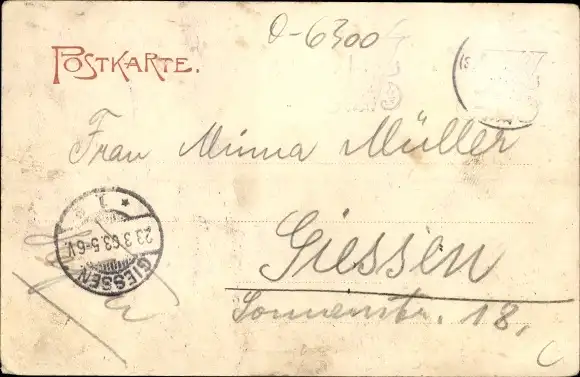 O-6300
POSTKARTE.
Frau Minna Müller
Giessen
Sonnenstr. 18,
GIESSEN
23.3.03.5-6V.